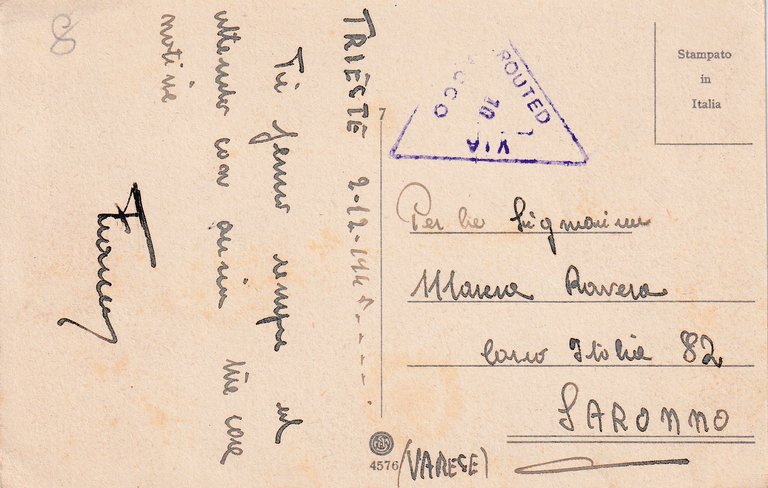 8
TRIESTE 2-12-194
Ti penso sempre ed
attendo con ansia tue care
notizie
Franco
7
ROUTED
VIA
10
Stampato
in
Italia
Per la Signorina
Rovera
Corso Italia 82
SARONNO
(VARESE)
4576